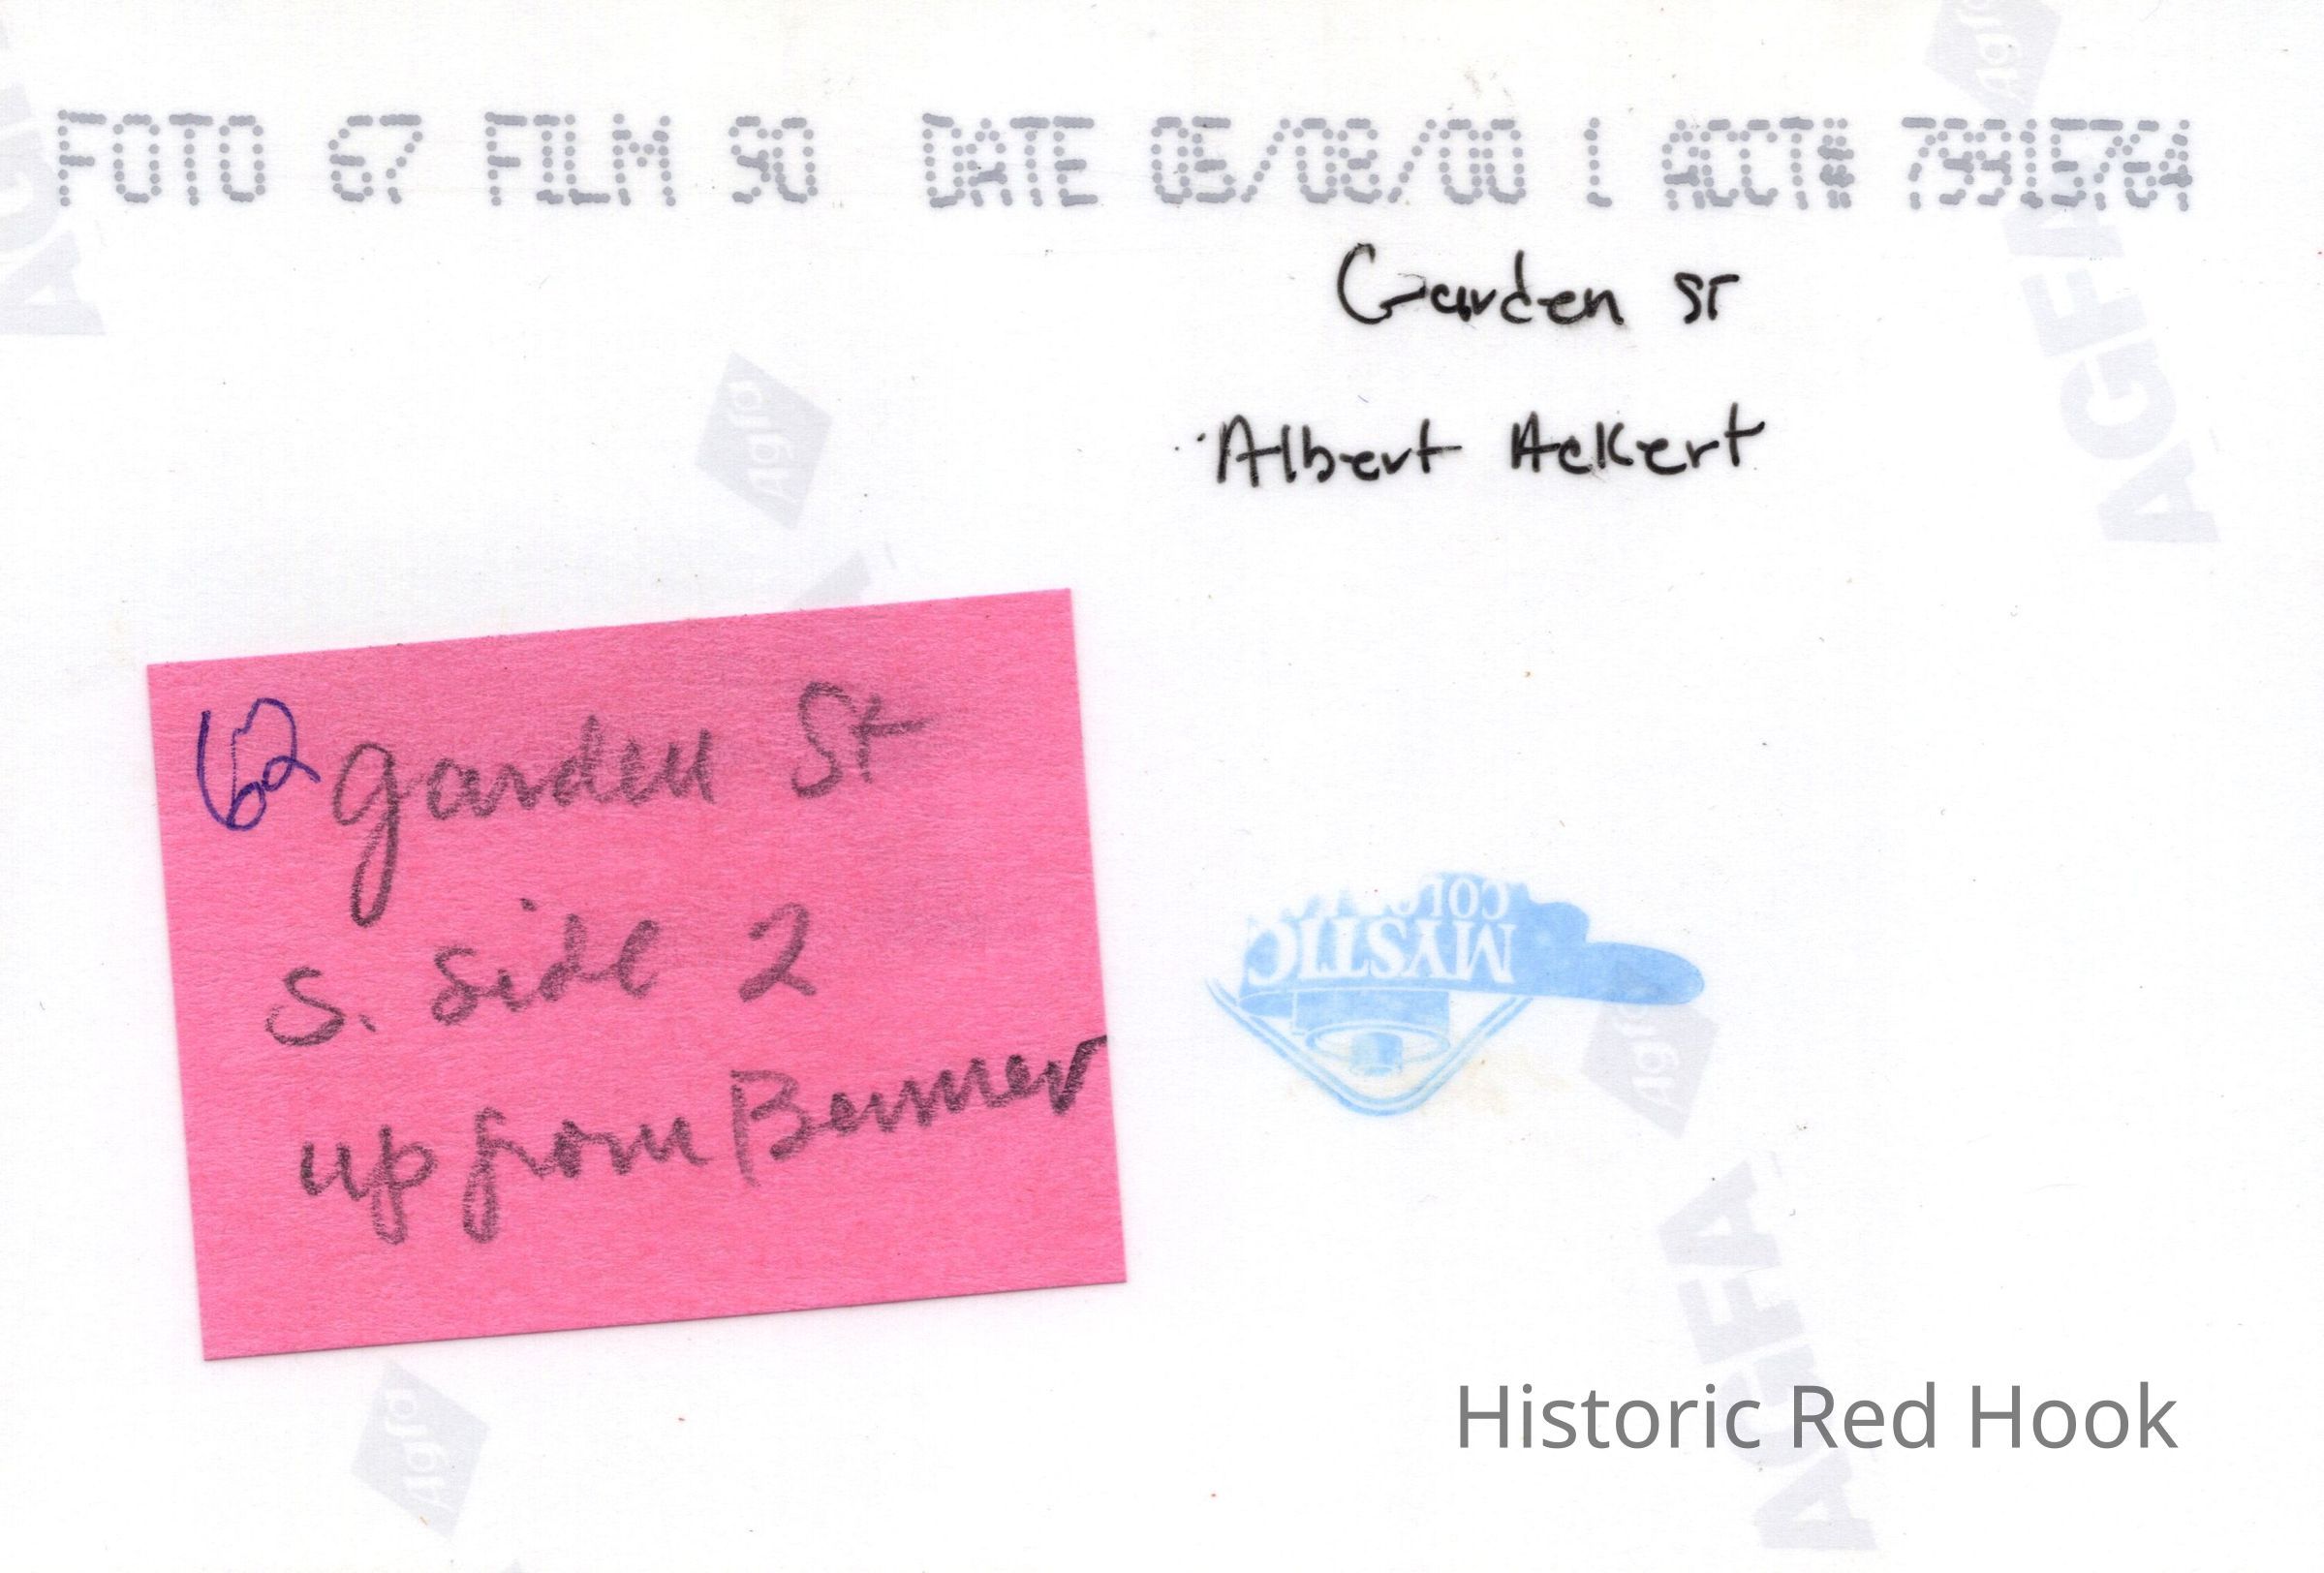 FOTO 67 FILM 90 DATE 05/08/00 1 ACCT# 79915764
Garden ST
Albert Ackert
62 Garden St
S. side 2
up from Benner
MYSTIC
COLOR
Agfa
AGFA
Agfa
AGFA
Agfa
AGFA
Agfa
Historic Red Hook